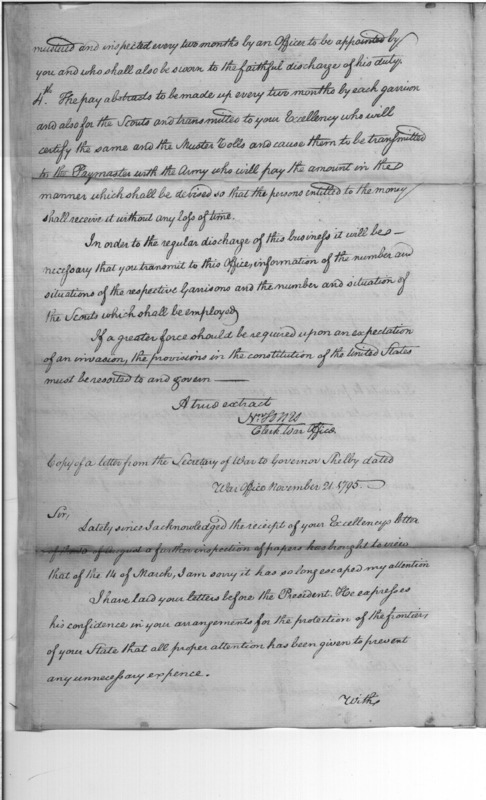 mustered and inspected every two months by an Officer to be appointed by
you and who shall also be sworn to the faithful discharge of his duty.
4th. The pay abstracts to be made up every two months by each garrison
and also for the Scouts and transmitted to your Excellency who will
certify the same and the Muster Rolls and cause them to be transmitted
to the Paymaster with the Army who will pay the amount in the
manner which shall be devised so that the persons entitled to the money
shall receive it without any loss of time.
In order to the regular discharge of this business it will be
necessary that you transmit to this Office, information of the number and
situations of the respective Garrisons and the number and situation of
the Scouts which shall be employed
If a greater force should be required upon an expectation
of an invasion, the provisions in the constitution of the United States
must be resorted to and govern —
A true extract
Wm Jones
Clerk War Office
Copy of a letter from the Secretary of War to Governor Shelby dated
War Office November 21. 1795.
Sir,
Lately since I acknowledged the receipt of your Excellencys letter
of August a further inspection of papers has brought to view
that of the 14 of March, I am sorry it has so long escaped my attention
I have laid your letters before the President. He expresses
his confidence in your arrangements for the protection of the frontiers
of your State that all proper attention has been given to prevent
any unnecessary expence.
With